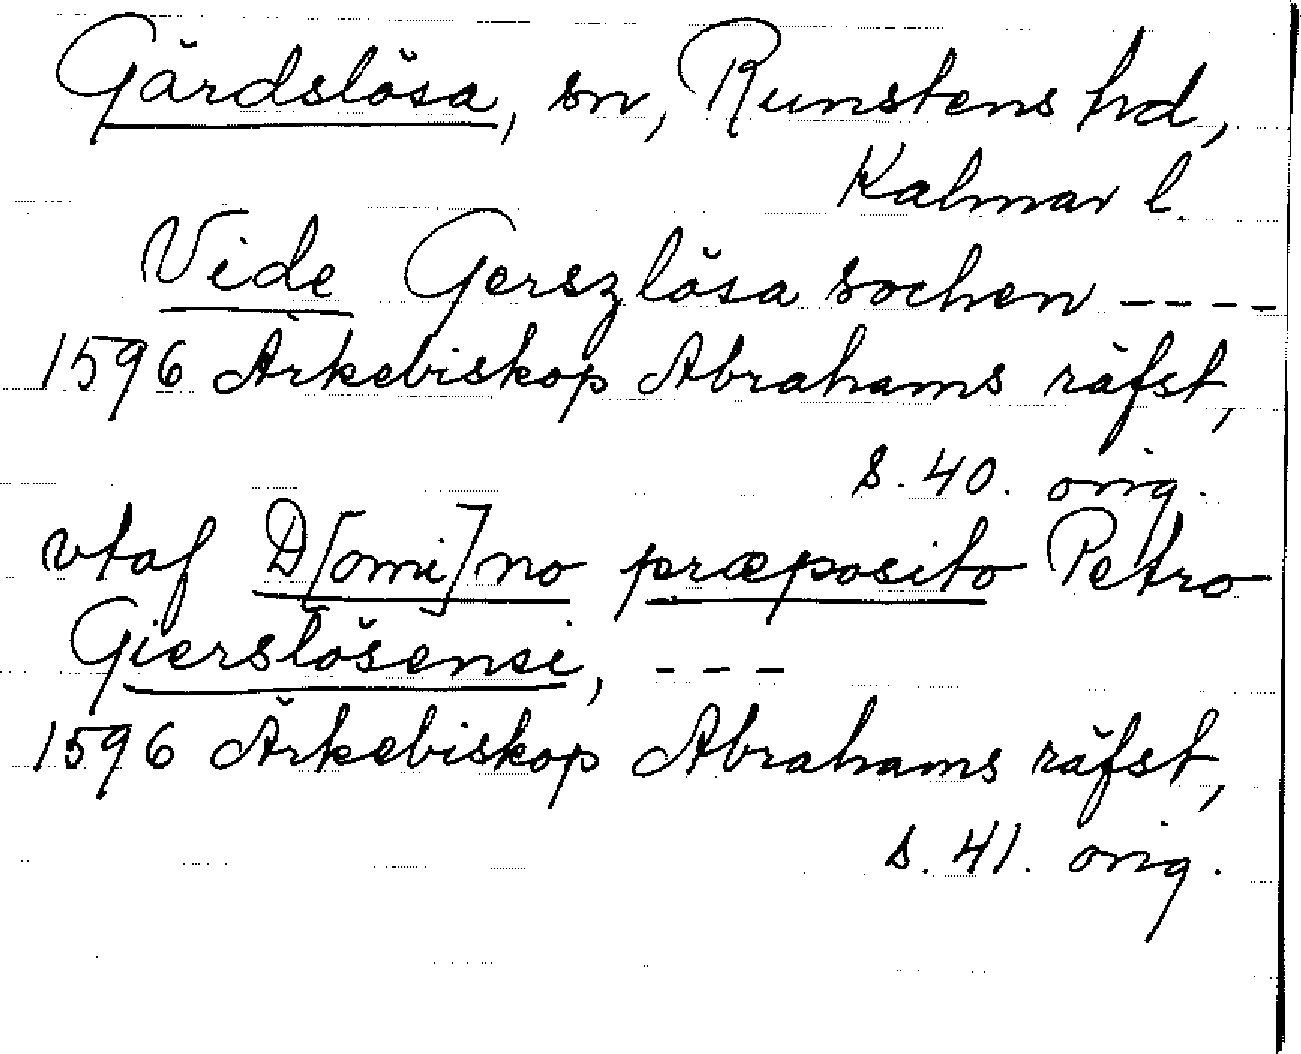 Gärdslösa, sn, Runstens hd,
Kalmar l.
Vide Gerszlösa sochen ----
1596 Ärkebiskop Abrahams räfst,
s. 40. orig.
vtaf D[omi]no præposito Petro
Gierslösensi, ---
1596 Ärkebiskop Abrahams räfst,
s. 41. orig.